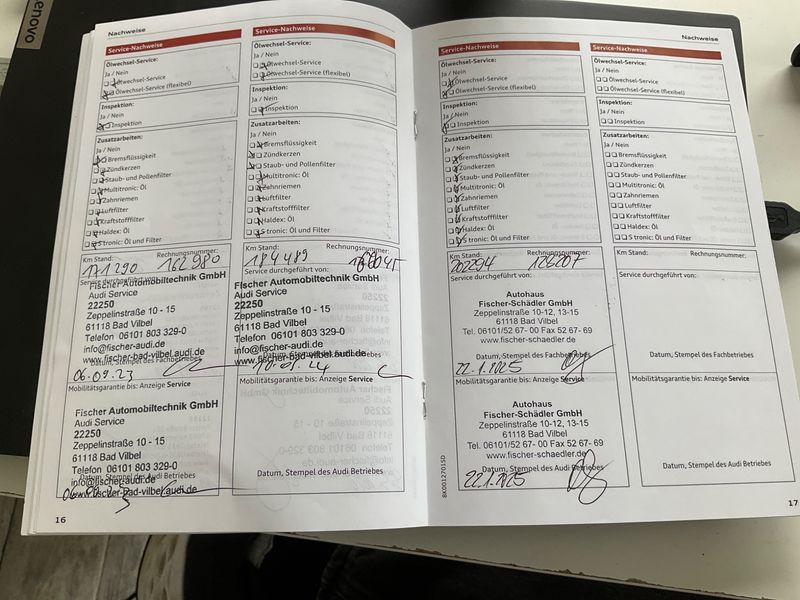 lenovo
Nachweise
Service-Nachweise
Ölwechsel-Service:
Ja / Nein
Ölwechsel-Service
Ölwechsel-Service (flexibel)
Inspektion:
Ja / Nein
Inspektion
Zusatzarbeiten:
Ja / Nein
Bremsflüssigkeit
Zündkerzen
Staub- und Pollenfilter
Multitronic: Öl
Zahnriemen
Luftfilter
Kraftstofffilter
Haldex: Öl
S tronic: Öl und Filter
Km Stand: Rechnungsnummer:
171290 162980
Service durchgeführt von:
Fischer Automobiltechnik GmbH
Audi Service
22250
Zeppelinstraße 10 - 15
61118 Bad Vilbel
Telefon 06101 803 329-0
info@fischer-audi.de
www.fischer-bad-vilbel.audi.de
Datum, Stempel des Fachbetriebes
06.09.23
Mobilitätsgarantie bis: Anzeige Service
Fischer Automobiltechnik GmbH
Audi Service
22250
Zeppelinstraße 10 - 15
61118 Bad Vilbel
Telefon 06101 803 329-0
info@fischer-audi.de
www.fischer-bad-vilbel.audi.de
16
Service-Nachweise
Ölwechsel-Service:
Ja / Nein
Ölwechsel-Service
Ölwechsel-Service (flexibel)
Inspektion:
Ja / Nein
Inspektion
Zusatzarbeiten:
Ja / Nein
Bremsflüssigkeit
Zündkerzen
Staub- und Pollenfilter
Multitronic: Öl
Zahnriemen
Luftfilter
Kraftstofffilter
Haldex: Öl
S tronic: Öl und Filter
Km Stand: Rechnungsnummer:
184489
Service durchgeführt von:
Fischer Automobiltechnik GmbH
Audi Service
22250
Zeppelinstraße 10 - 15
61118 Bad Vilbel
Telefon 06101 803 329-0
info@fischer-audi.de
www.fischer-bad-vilbel.audi.de
Datum, Stempel des Fachbetriebes
Mobilitätsgarantie bis: Anzeige Service
Datum, Stempel des Audi Betriebes
Nachweise
Service-Nachweise
Ölwechsel-Service:
Ja / Nein
Ölwechsel-Service
Ölwechsel-Service (flexibel)
Inspektion:
Ja / Nein
Inspektion
Zusatzarbeiten:
Ja / Nein
Bremsflüssigkeit
Zündkerzen
Staub- und Pollenfilter
Multitronic: Öl
Zahnriemen
Luftfilter
Kraftstofffilter
Haldex: Öl
S tronic: Öl und Filter
Km Stand: Rechnungsnummer:
202294
Service durchgeführt von:
Autohaus
Fischer-Schädler GmbH
Zeppelinstraße 10-12, 13-15
61118 Bad Vilbel
Tel. 06101/52 67- 00 Fax 52 67- 69
www.fischer-schaedler.de
Datum, Stempel des Fachbetriebes
22.1.2025
Mobilitätsgarantie bis: Anzeige Service
Autohaus
Fischer-Schädler GmbH
Zeppelinstraße 10-12, 13-15
61118 Bad Vilbel
Tel. 06101/52 67- 00 Fax 52 67- 69
www.fischer-schaedler.de
Datum, Stempel des Audi Betriebes
22.1.2025
8K0012701SD
Service-Nachweise
Ölwechsel-Service:
Ja / Nein
Ölwechsel-Service
Ölwechsel-Service (flexibel)
Inspektion:
Ja / Nein
Inspektion
Zusatzarbeiten:
Ja / Nein
Bremsflüssigkeit
Zündkerzen
Staub- und Pollenfilter
Multitronic: Öl
Zahnriemen
Luftfilter
Kraftstofffilter
Haldex: Öl
S tronic: Öl und Filter
Km Stand: Rechnungsnummer:
Service durchgeführt von:
Datum, Stempel des Fachbetriebes
Mobilitätsgarantie bis: Anzeige Service
Datum, Stempel des Audi Betriebes
17